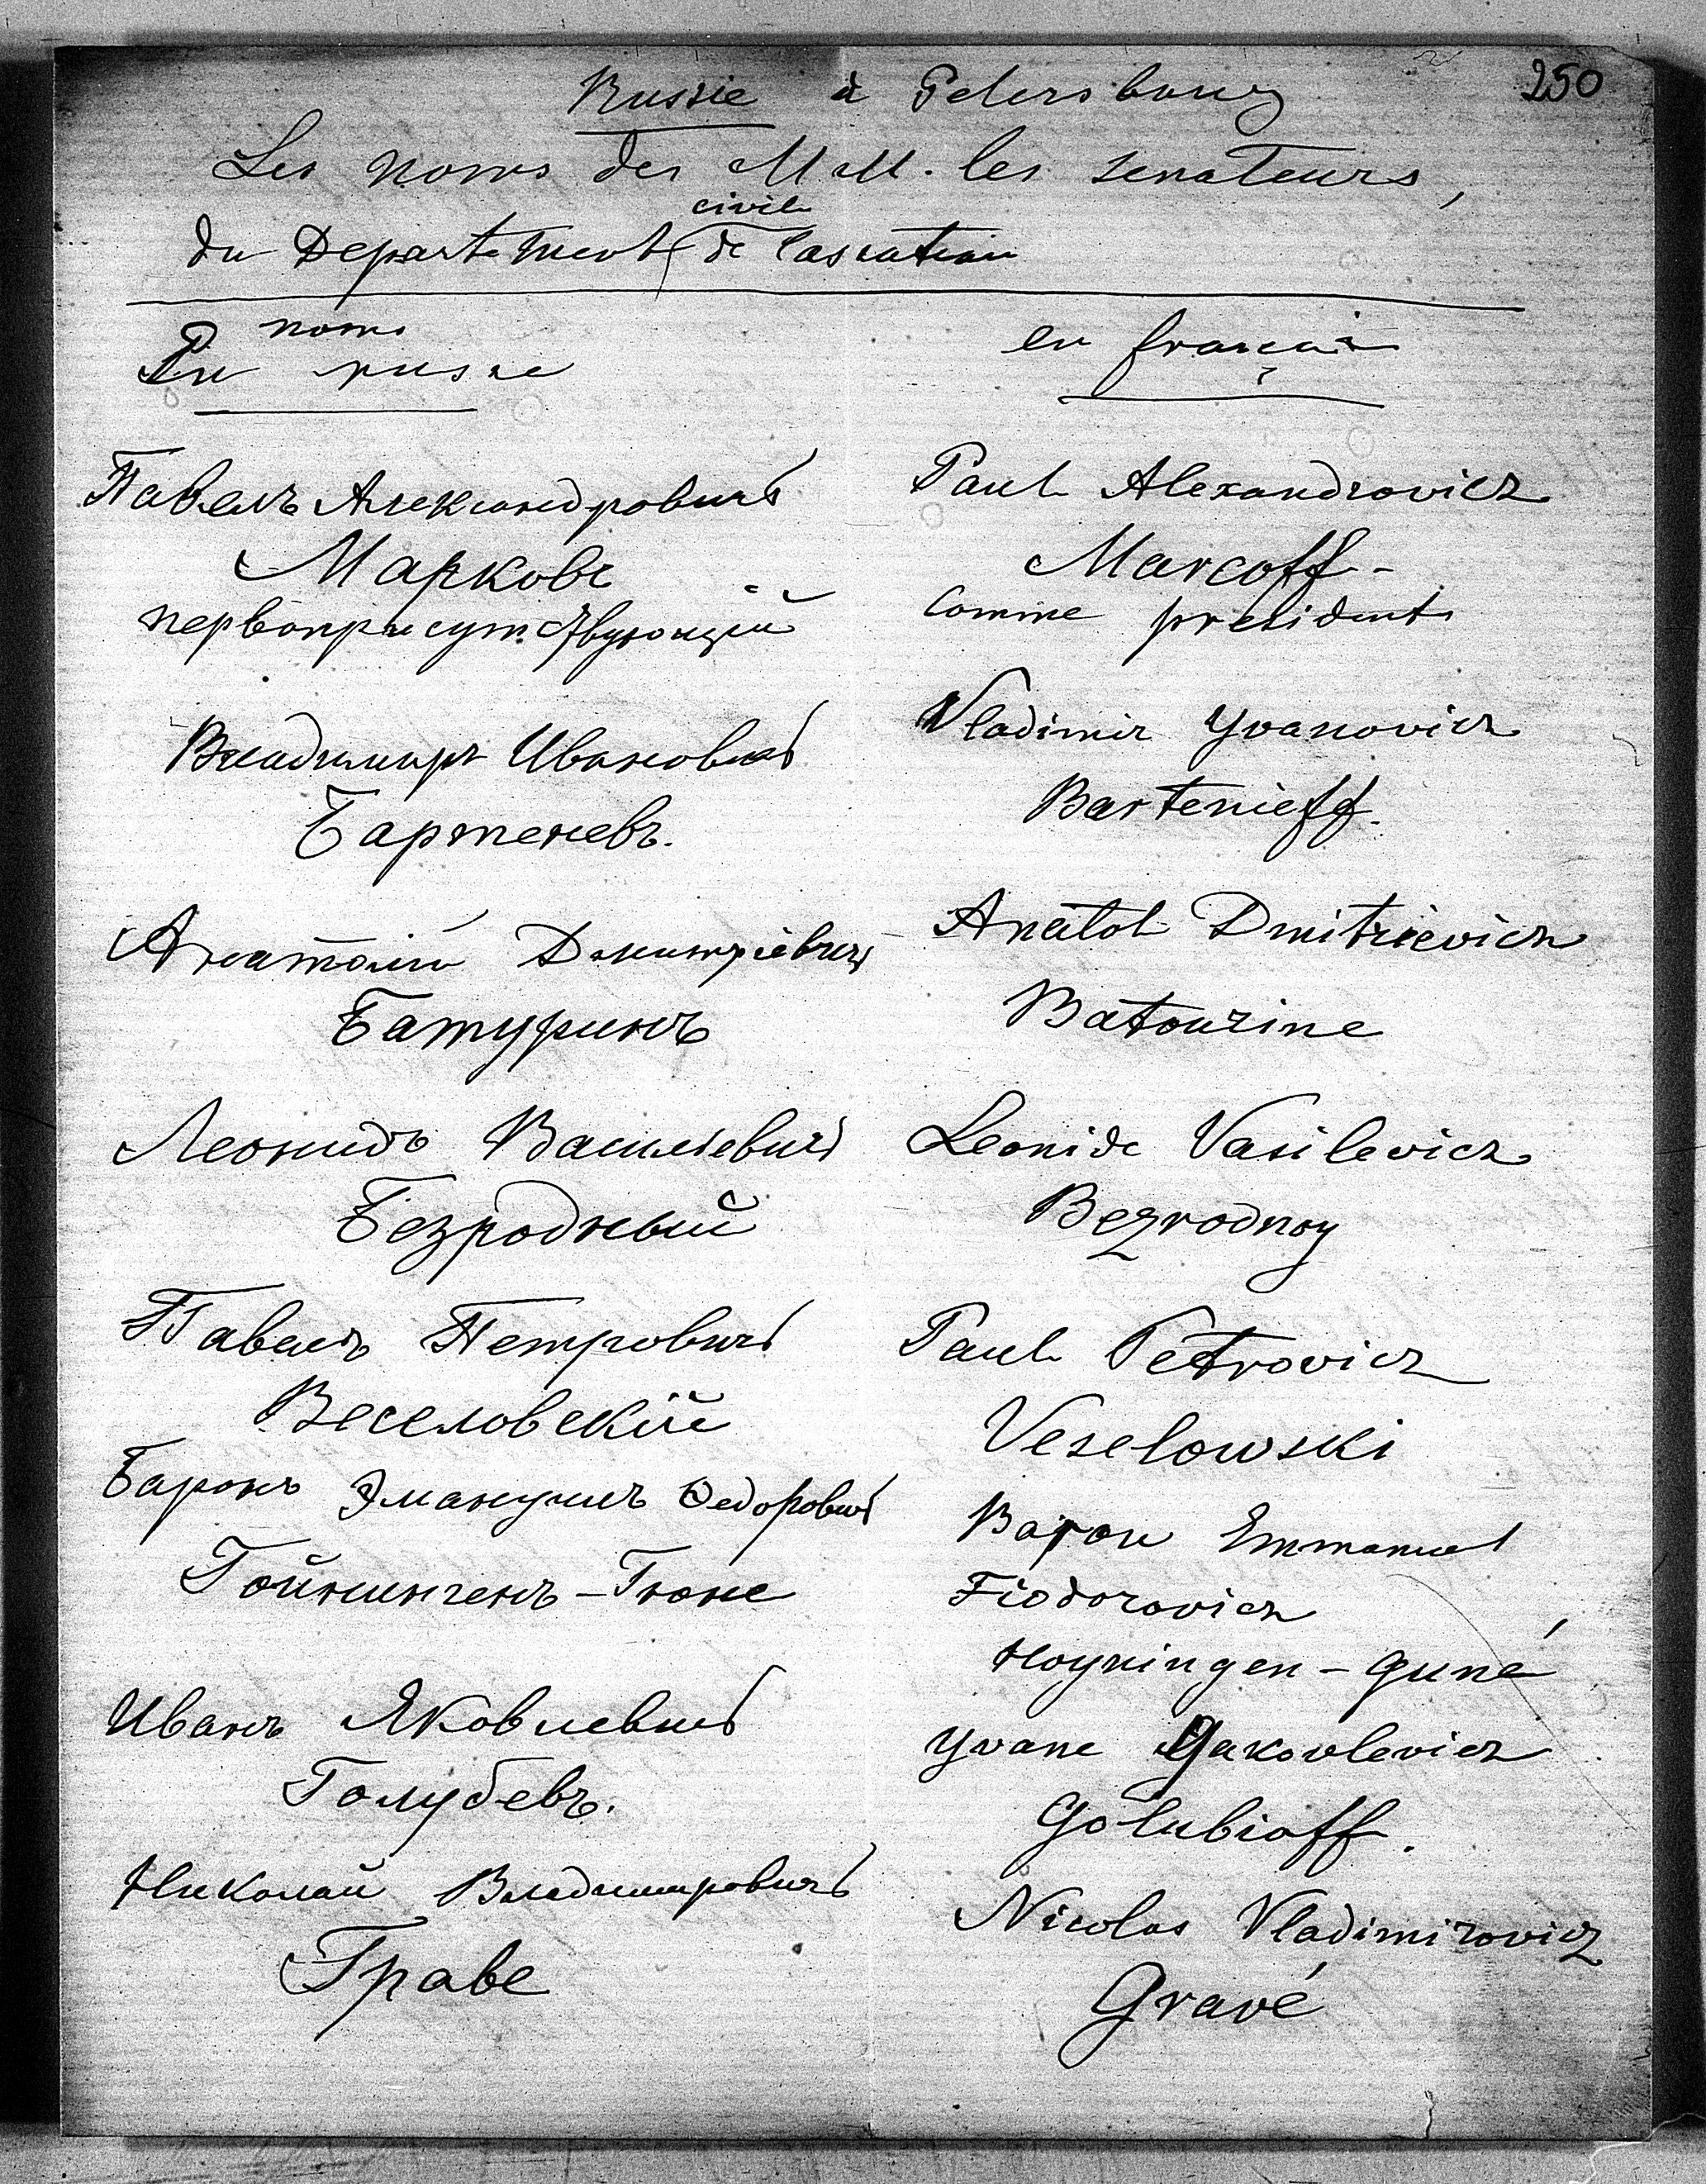 250
Russie à Petersbourg
Les noms des M M. les senateurs,
civile
du Departement de Cassation
noms
En russe
en français
Павелъ Александровичъ
Марковъ
первоприсутствующій
Paul Alexandrovicz
Marcoff -
Comme president
Владимиръ Ивановичъ
Бартеневъ.
Vladimir Yvanovicz
Bartenieff.
Анатолій Дмитріевичъ
Батуринъ
Anatol Dmitrievicz
Batourine
Леонидъ Васильевичъ
Безродный
Leonide Vasilevicz
Bezrodnoy
Павелъ Петровичъ
Веселовскій
Paul Petrovicz
Veselowski
Баронъ Эмануилъ Ѳедоровичъ
Гойнингенъ-Гюне
Baron Emmanuel
Fiodorovicz
Hoyningen-Guné
Иванъ Яковлевичъ
Голубевъ.
Yvane Yakovlevicz
Golubioff.
Николай Владимировичъ
Граве
Nicolas Vladimirovicz
Gravé